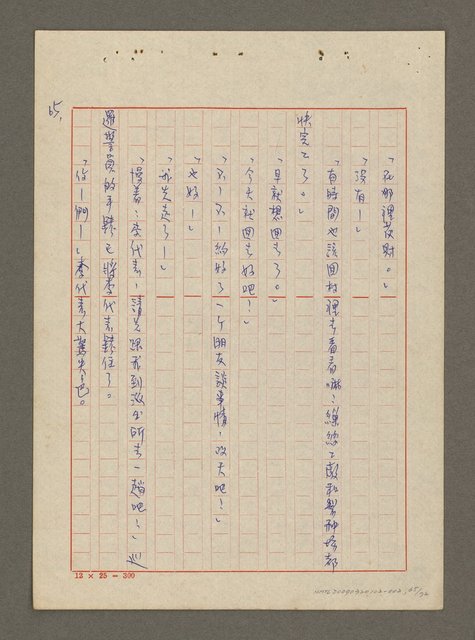 「在那裡發財。」
「沒有—」
「有時間也該回村裡去看看嘛!
快完了。」
「早就想回去了。」
「今天就回去好吧!」
「不!不!約好了一个朋友談事情,改天吧!」
「也好!」
「我先走了!」
「慢着!李代表!請先跟我到派出所去一趟吧!」巡
邏警員的手銬已將李代表銬住了。
「你—們—」李代表大驚失色。
65.
12 × 25 = 300